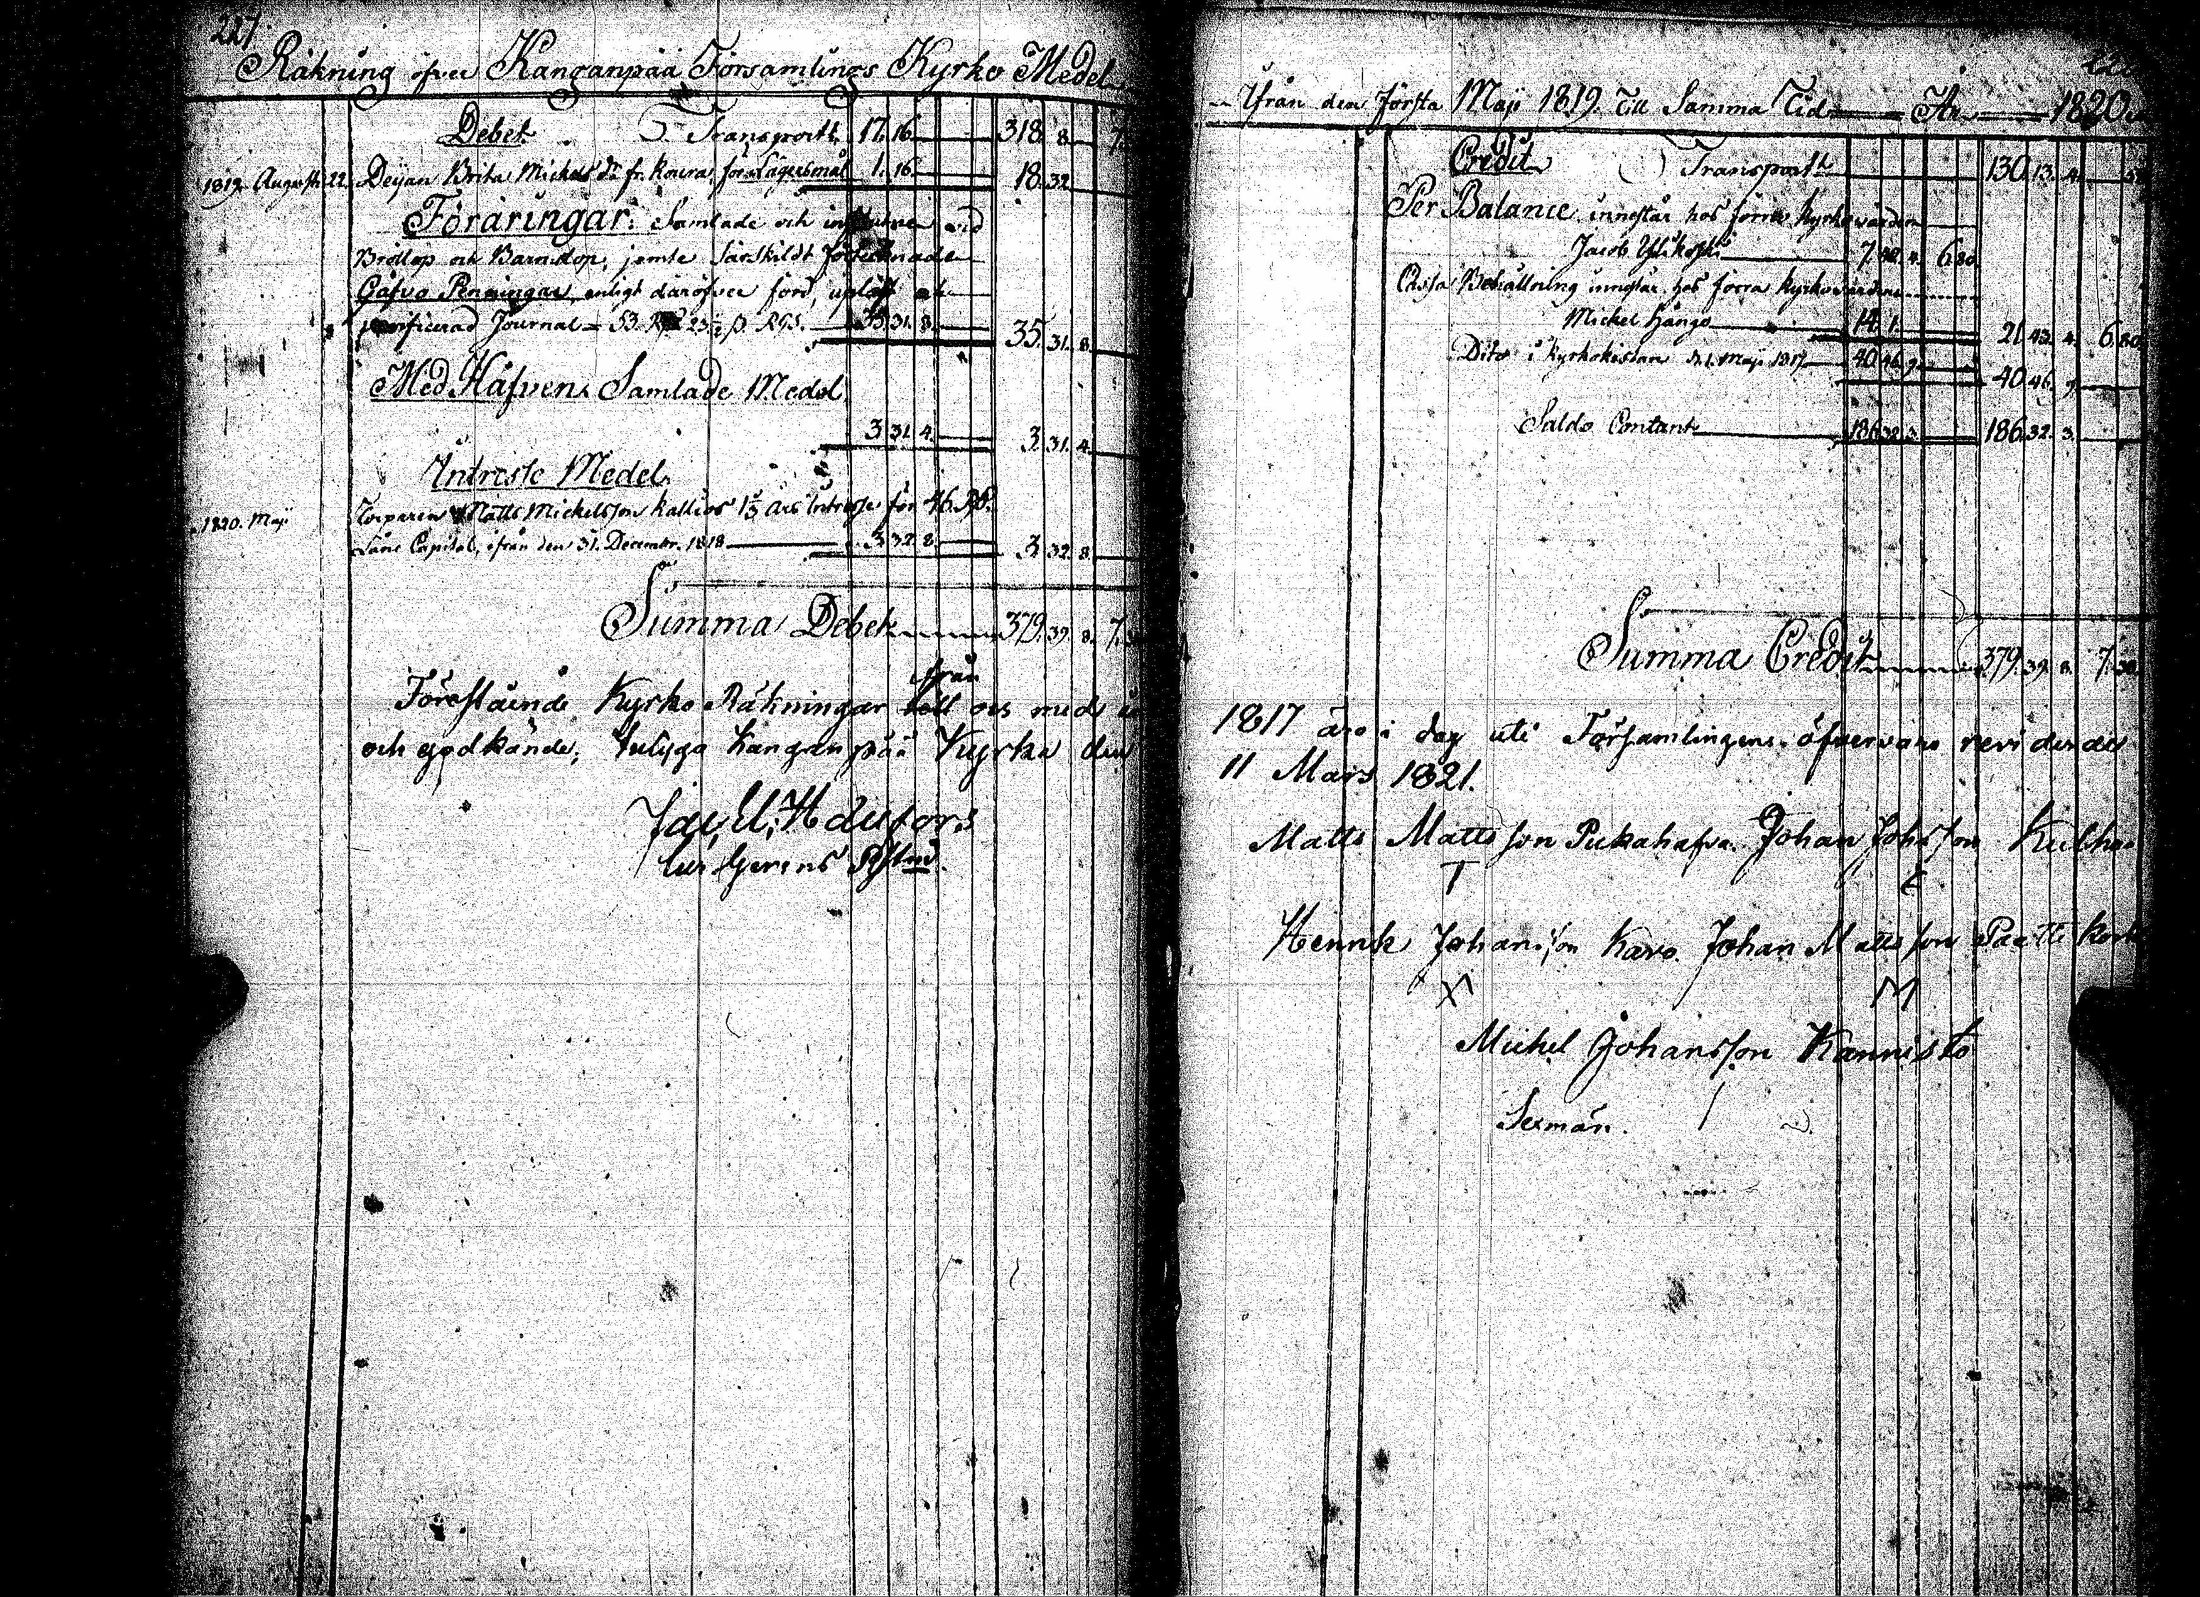 227.
Räkning öfver Kanganpää Församlings Kyrko Medel
Debet Transport 17. 16. 318. 8. 7.
1819. Augusti 22. Deijan Brita Michelsd:r fr. Koura, för Lägersmål 1. 16. 18. 32.
Föräringar. Samlade och influtne vid
Bröllop och Barndop, jemte särskildt förtecknade
Gåfvo Penningar, enligt däröfver förd, upläst och
verificerad Journal 35. 31. 8. 35. 31. 8.
Med Håfven Samlade Medel
3. 31. 4. 3. 31. 4.
Intresse Medel
1820. Maji Torparen Matts Mickelsson Kallios 1⅓ års Intresse för 46. R
Låne Capital, ifrån den 31. Decembr. 1818 3. 32. 8. 3. 32. 8.
Summa Debet 379. 39. 8. 7.
Förestående Kyrko Räkningar från oss med
och godkände; Intyga Kangan pää Kyrka den
Ifrån den Första Maji 1819. Till Samma Tid År 1820
Credit Transport 130. 13. 4.
Per Balance innestår hos förra Kyrkovärden
Jacob Ylikoski 7. 42. 4. 6. 80.
Cassa Behållning innestår hos förra Kyrkovärden
Mickel Hångo 14. 1. 21. 43. 4. 6. 80
Dito i Kyrkokistan d. 1. Maji 1817 40. 46. 9. 40. 46. 9.
Saldo Contant 186. 32. 3. 186. 32. 3.
Summa Credit 379. 39. 8. 7.
1817 äro i dag uti Församlingens öfvervaro reviderade
11 Mars 1821.
Matts Mattsson Pukahafva. Johan Johsson
T
Henrik Johansson Karo. Johan Mattsson
X M
Michel Johansson Kannisto
Sexmän.